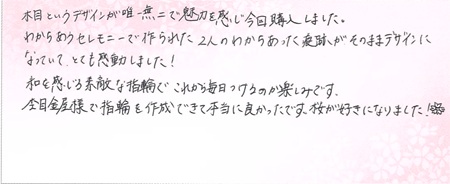 木目というデザインが唯一無二で魅力を感じ今回購入しました。
わかちあうセレモニーで作られた2人のわかちあった痕跡がそのままデザインに
なっていて、とても感動しました!
和を感じる素敵な指輪で これから毎日つけるのが楽しみです。
杢目金屋様で指輪を作成できて本当に良かったです。桜が好きになりました!